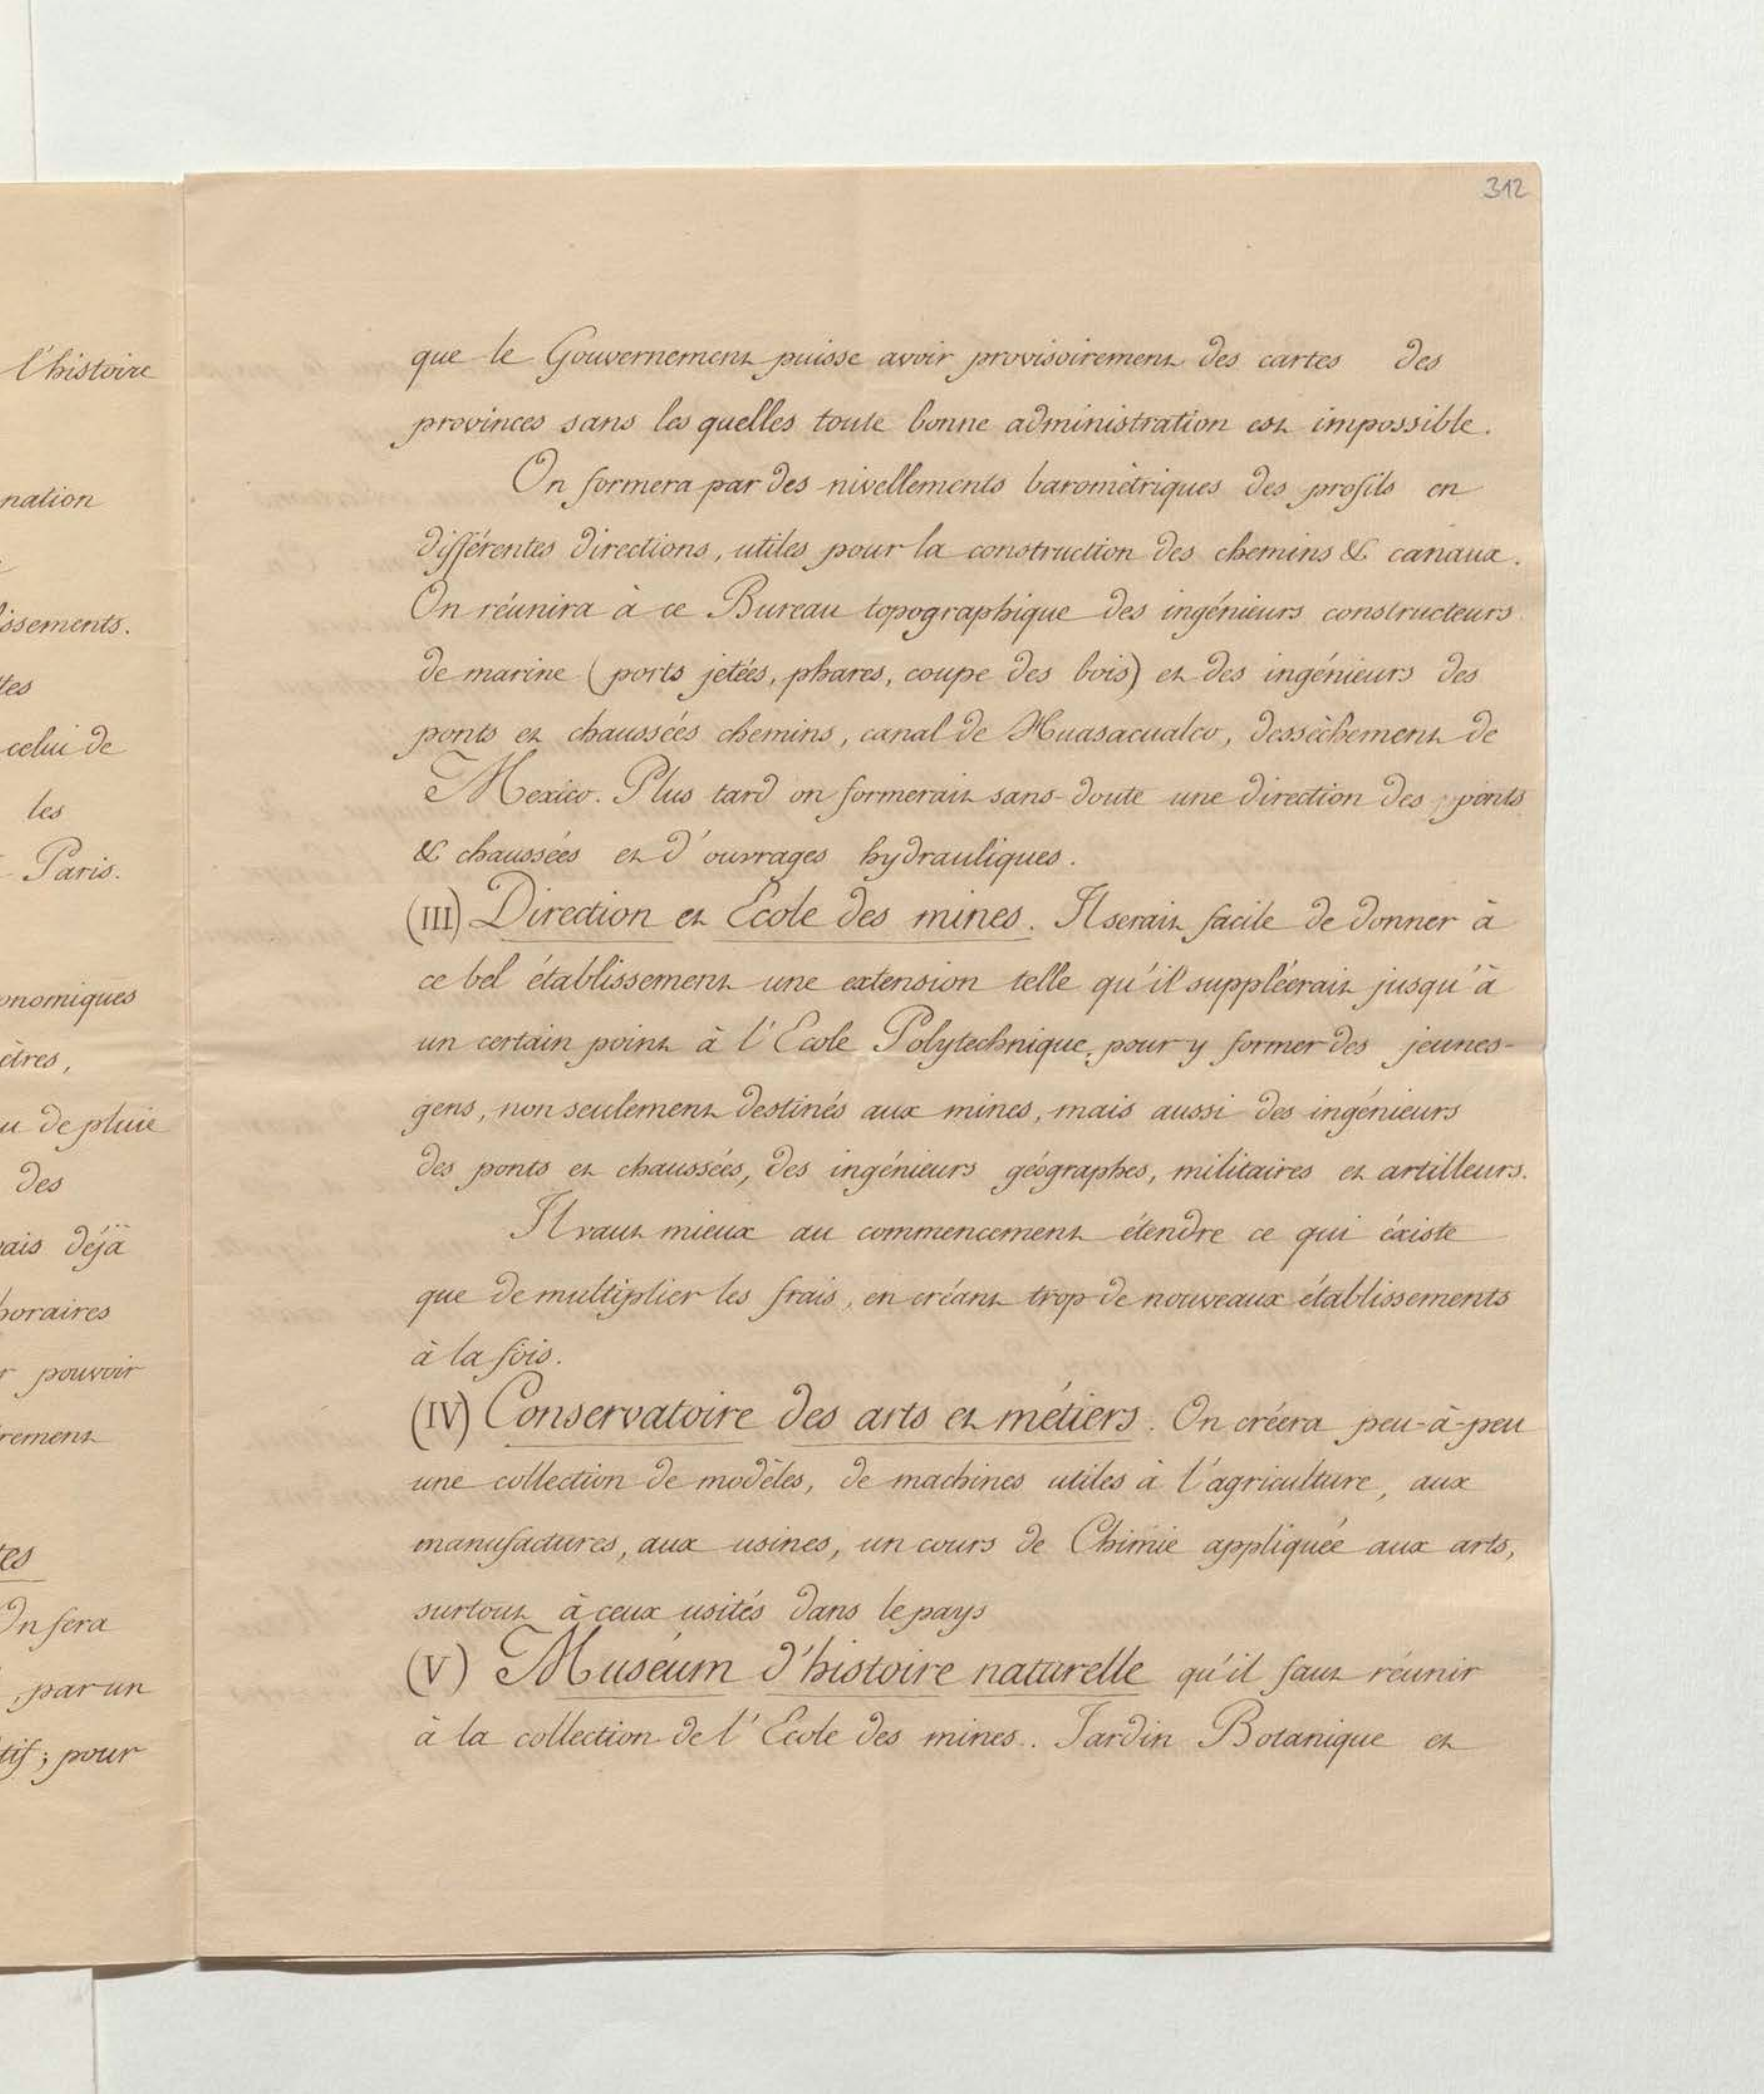 l'histoire
nation
issements.
tes
celui de
les
Paris.
onomiques
ètres,
u de pluie
des
ais déjà
horaires
r pouvoir
rement
tes
On fera
, par un
tif; pour
312
que le Gouvernement puisse avoir provisoirement des cartes des
provinces sans les quelles toute bonne administration est impossible.
On formera par des nivellements barométriques des profils en
différentes directions, utiles pour la construction des chemins & canaux.
On réunira à ce Bureau topographique des ingénieurs constructeurs
de marine (ports jetées, phares, coupe des bois) et des ingénieurs des
ponts et chaussées chemins, canal de Huasacualco, dessèchement de
Mexico. Plus tard on formerait sans-doute une direction des ponts
& chaussées et d'ouvrages hydrauliques.
(III) Direction et Ecole des mines. Il serait facile de donner à
ce bel établissement une extension telle qu'il suppléerait jusqu'à
un certain point à l'Ecole Polytechnique, pour y former des jeunes-
gens, non seulement destinés aux mines, mais aussi des ingénieurs
des ponts et chaussées, des ingénieurs géographes, militaires et artilleurs.
Il vaut mieux au commencement étendre ce qui éxiste
que de multiplier les frais, en créant trop de nouveaux établissements
à la fois.
(IV) Conservatoire des arts et métiers. On créera peu-à-peu
une collection de modèles, de machines utiles à l'agriculture, aux
manufactures, aux usines, un cours de Chimie appliquée aux arts,
surtout à ceux usités dans le pays
(V) Muséum d'histoire naturelle qu'il faut réunir
à la collection de l'Ecole des mines.. Jardin Botanique et